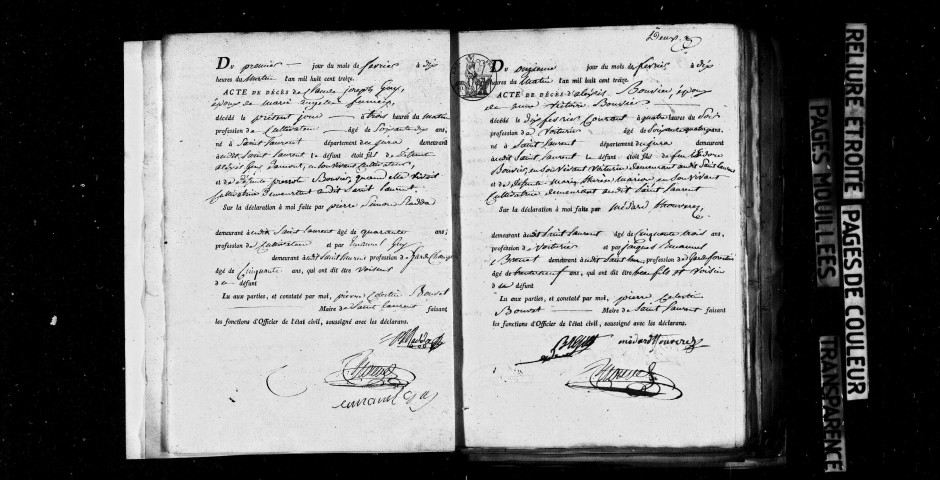 Du premier jour du mois de fevrier à dix
heures du matin l'an mil huit cent treize.
ACTE DE DÉCÈS de Claude joseph Guy,
époux de marie
décédé le présent jour à trois heures du matin
profession de Cultivateur âgé de soixante dix ans,
né à Saint Laurent département du jura demeurant
audit Saint Laurent le défunt étoit fils de
Guy en son vivant Cultivateur,
et de défunte pierrette Bouvier, quand elle vivait
Cultivatrice demeurant audit Saint Laurent.
Sur la déclaration à moi faite par pierre Simon
demeurant audit Saint Laurent âgé de quarante ans;
profession de Cultivateur et par Emanuel Guy
demeurant audit Saint Laurent profession de garde Champêtre
âgé de Cinquante ans, qui ont dit être voisins
d u défunt
Lu aux parties, et constaté par moi, pierre Celestin Bouvet
Maire de Saint Laurent faisant
les fonctions d'Officier de l'état civil, soussigné avec les déclarans.
Bouvet
emanuel Guy
Deux
Du onzieme jour du mois de fevrier à dix
heures du matin l'an mil huit cent treize.
ACTE DE DÉCÈS d'aloysis Bouvier, époux
de Victoire Bouvier
décédé le dix fevrier Courant à quatre heures du soir
profession de voiturier âgé de soixante quatre ans,
né à Saint Laurent département du jura demeurant
audit Saint Laurent le défunt étoit fils de feu
Bouvier, en son vivant voiturier demeurant audit Saint Laurent
et de défunte Marie en son vivant
Cultivatrice demeurant audit Saint Laurent
Sur la déclaration à moi faite par médard thouverez,
demeurant audit Saint Laurent âgé de Cinquante trois ans,
profession de voiturier et par jacques Emanuel
Brenet demeurant audit Saint Laurent profession de
âgé de ans, qui ont dit être beau fils et voisin
d u défunt
Lu aux parties, et constaté par moi, pierre Celestin
Bouvet Maire de Saint Laurent faisant
les fonctions d'Officier de l'état civil, soussigné avec les déclarans.
médard thouverez
Bouvet
RELIURE ETROITE
PAGES MOUILLEES
PAGES DE COULEUR
TRANSPARENCE